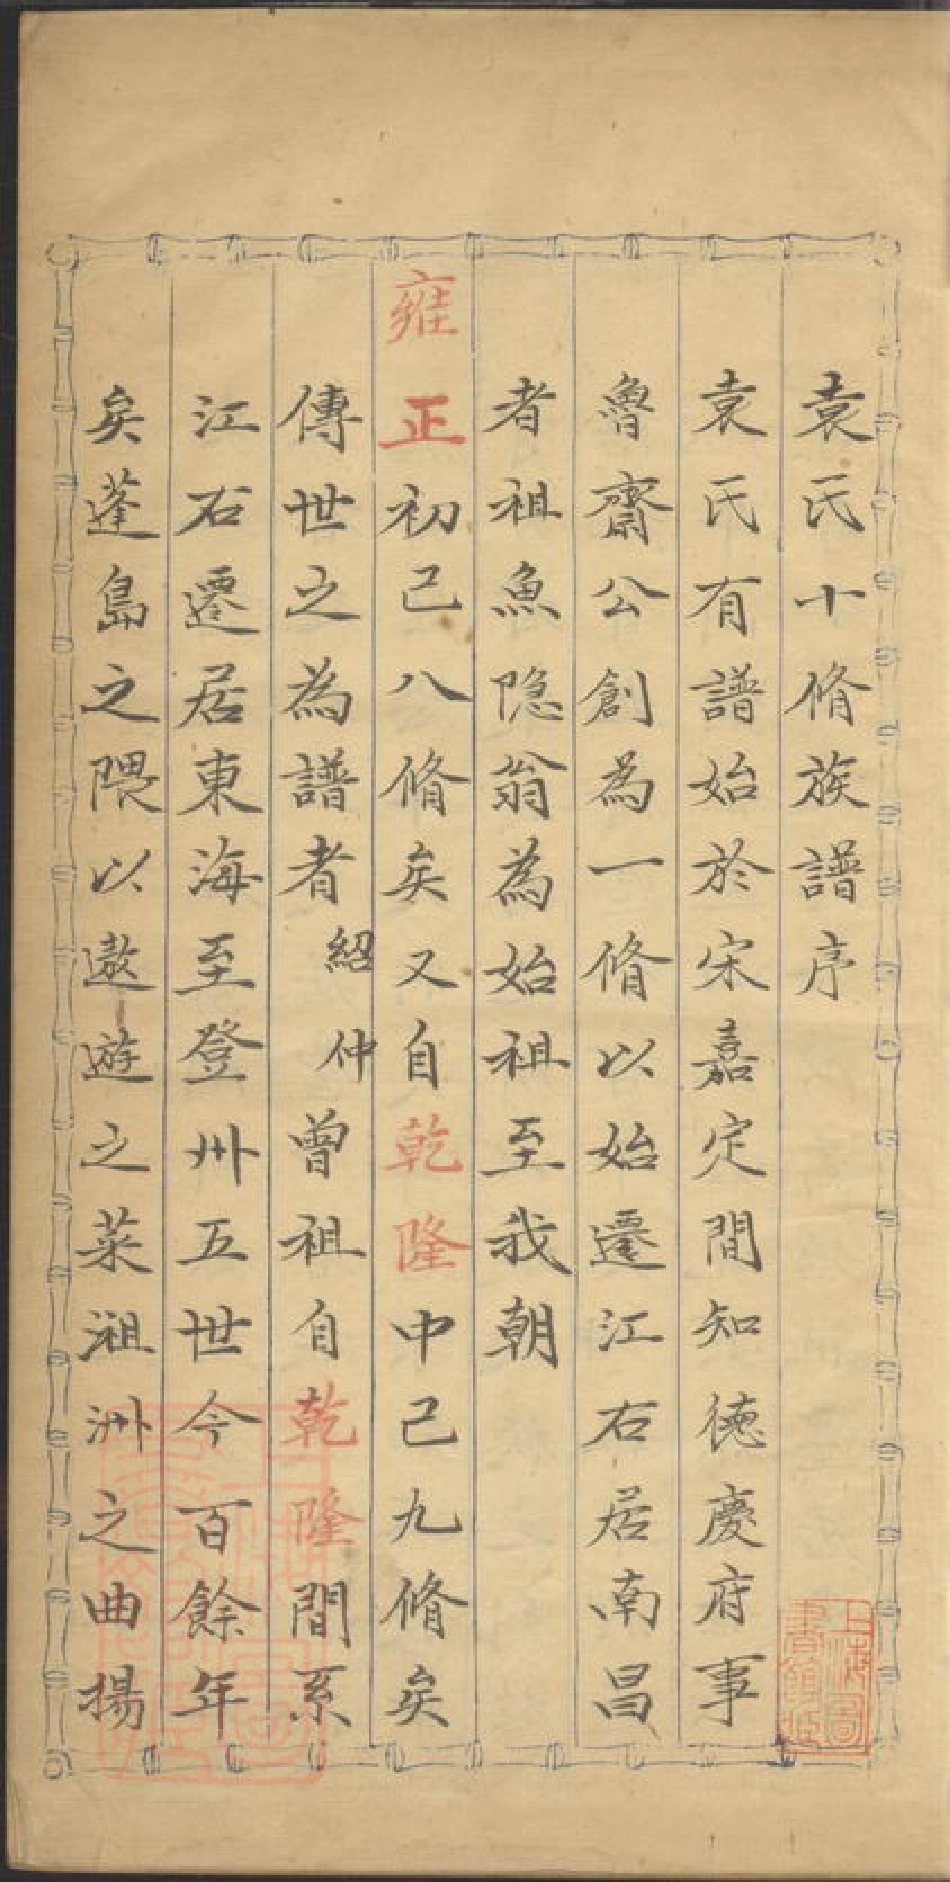 袁氏十脩族譜序
袁氏有譜始於宋嘉定間知德慶府事
魯齋公創為一脩以始遷江右居南昌
者祖魚隐翁為始祖至我朝
雍正初己八脩矣又自乾隆中己九脩矣
傳世之為譜者紹仲曾祖自乾隆間系
江右遷居東海至登州五世今百餘年
矣蓬島之隈以遨遊之菜沮洲之曲揚
上海圖書館藏